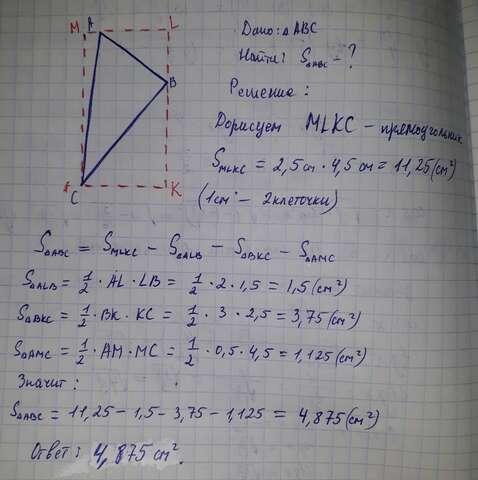 M A L
B
C K
Дано: △ABC
Найти: S△ABC - ?
Решение:
Дорисуем MLKC - прямоугольник
S MLKC = 2,5 см · 4,5 см = 11,25 (см²)
(1см - 2клеточки)
S△ABC = S MLKC - S△ALB - S△BKC - S△AMC
S△ALB = 1/2 · AL · LB = 1/2 · 2 · 1,5 = 1,5 (см²)
S△BKC = 1/2 · BK · KC = 1/2 · 3 · 2,5 = 3,75 (см²)
S△AMC = 1/2 · AM · MC = 1/2 · 0,5 · 4,5 = 1,125 (см²)
Значит:
S△ABC = 11,25 - 1,5 - 3,75 - 1,125 = 4,875 (см²)
Ответ: 4,875 см².